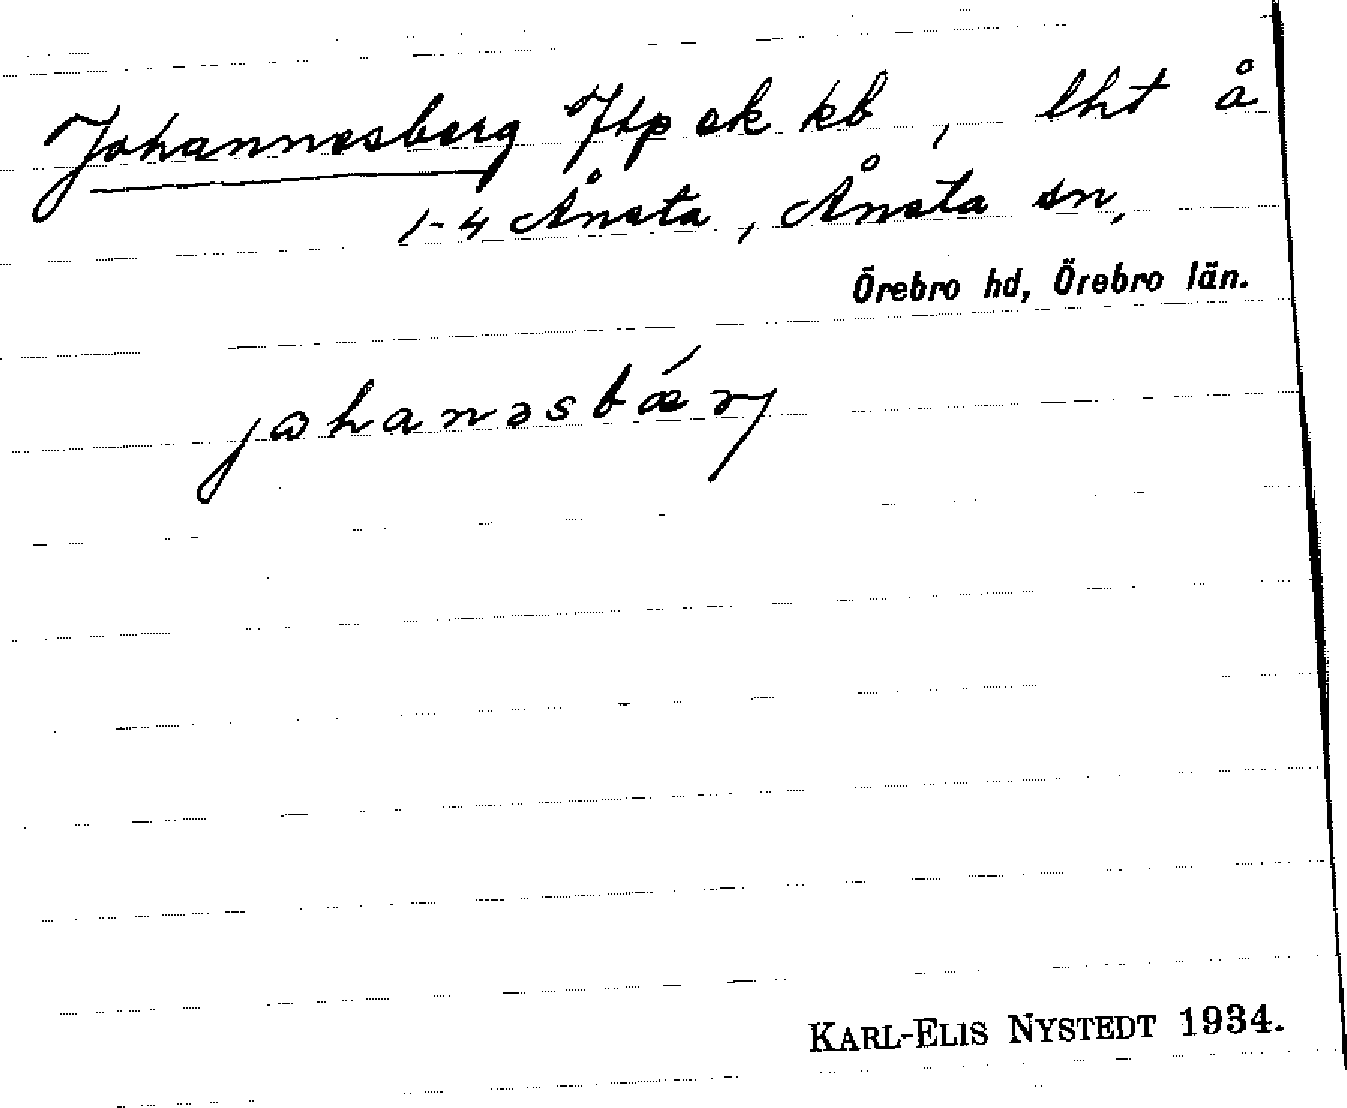 Johannesberg Jtp ek kb, lht å
1-4 Ånsta, Ånsta sn,
Örebro hd, Örebro län.
johanəsbǽrj
KARL-ELIS NYSTEDT 1934.